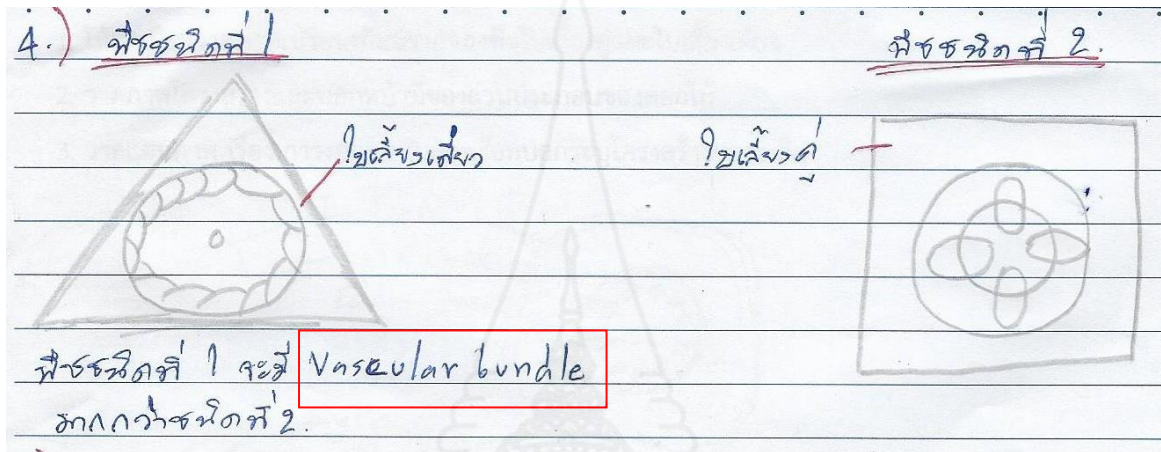 4.) พืชชนิดที่ 1
พืชชนิดที่ 2.
ใบเลี้ยงเดี่ยว
ใบเลี้ยงคู่
พืชชนิดที่ 1 จะมี Vascular bundle
มากกว่าชนิดที่ 2.